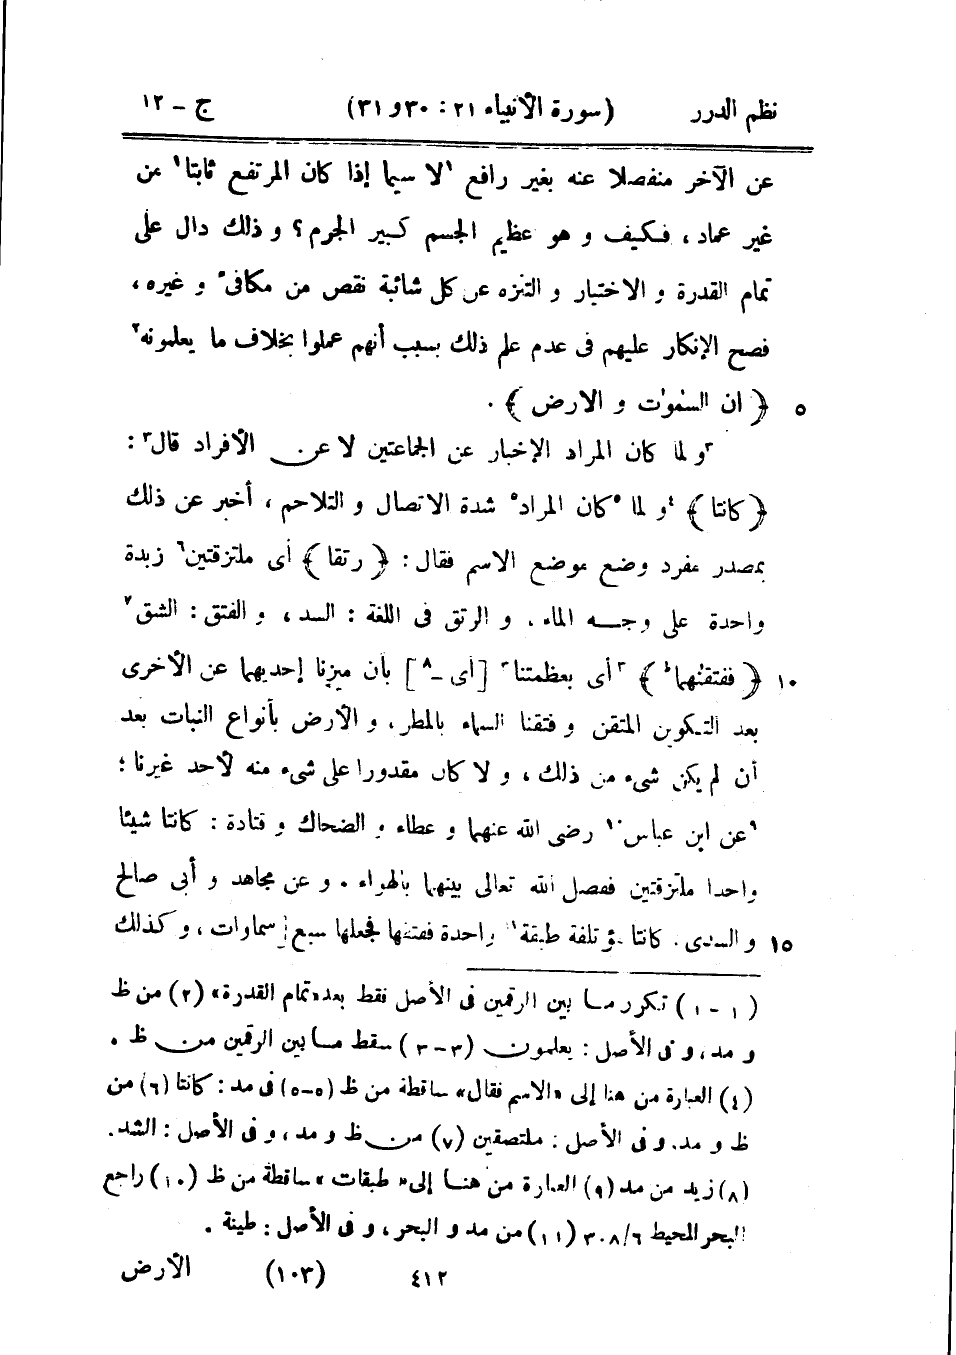 نظم الدرر (سورة الأنبياء ٢١ : ٣٠ و ٣١) ج – ١٢
عن الآخر منفصلا عنه بغير رافع ١لا سيما إذا كان المرتفع ثابتا١ من
غير عماد ، فكيف و هو عظيم الجسم كبير الجرم ؟ و ذلك دال على
تمام القدرة و الاختيار و التنزه عن كل شائبة نقص من مكافىء و غيره ،
فصح الإنكار عليهم فى عدم علم ذلك بسبب أنهم عملوا بخلاف ما يعلمونه٢
٥ ﴿ ان السمٰوٰت و الارض ﴾ .
٣و لما كان المراد الإخبار عن الجماعتين لا عن الأفراد قال٣ :
﴿ كانتا ﴾ ٤و لما ٥كان المراد٥ شدة الاتصال و التلاحم ، أخبر عن ذلك
بمصدر مفرد وضع موضع الاسم فقال : ﴿ رتقا ﴾ أى ملتزقتين٦ زبدة
واحدة على وجه الماء . و الرتق فى اللغة : السد ، و الفتق : الشق٧
١٠ ﴿ ففتقنٰهما ط ﴾ ٣أى بعظمتنا٣ [ أى –٨ ] بأن ميزنا إحديهما عن الأخرى
بعد التكوين المتقن و فتقنا السماء بالمطر ، و الأرض بأنواع النبات بعد
أن لم يكن شىء من ذلك ، و لا كان مقدورا على شىء منه لأحد غيرنا ؛
٩عن ابن عباس١٠ رضى الله عنهما و عطاء و الضحاك و قتادة : كانتا شيئا
واحدا ملتزقتين ففصل الله تعالى بينهما بالهواء . و عن مجاهد و أبى صالح
١٥ و السدى . كانتا مؤتلفة طبقة١١ واحدة ففتقها فجعلها سبع سماوات ، و كذلك
(١ – ١) تكرر ما بين الرقمين فى الأصل فقط بعد «تمام القدرة» (٢) من ظ
و مد ، و فى الأصل : يعلمون (٣–٣) سقط ما بين الرقمين من ظ .
(٤) العبارة من هنا إلى «الاسم فقال» ساقطة من ظ (٥–٥) فى مد : كانتا (٦) من
ظ و مد . و فى الأصل : ملتصقين (٧) من ظ و مد ، و فى الأصل : الشد .
(٨) زيد من مد (٩) العبارة من هنا إلى «طبقات» ساقطة من ظ (١٠) راجع
البحر المحيط ٣٠٨/٦ (١١) من مد و البحر ، و فى الأصل : طينة .
٤١٢ (١٠٣) الأرض